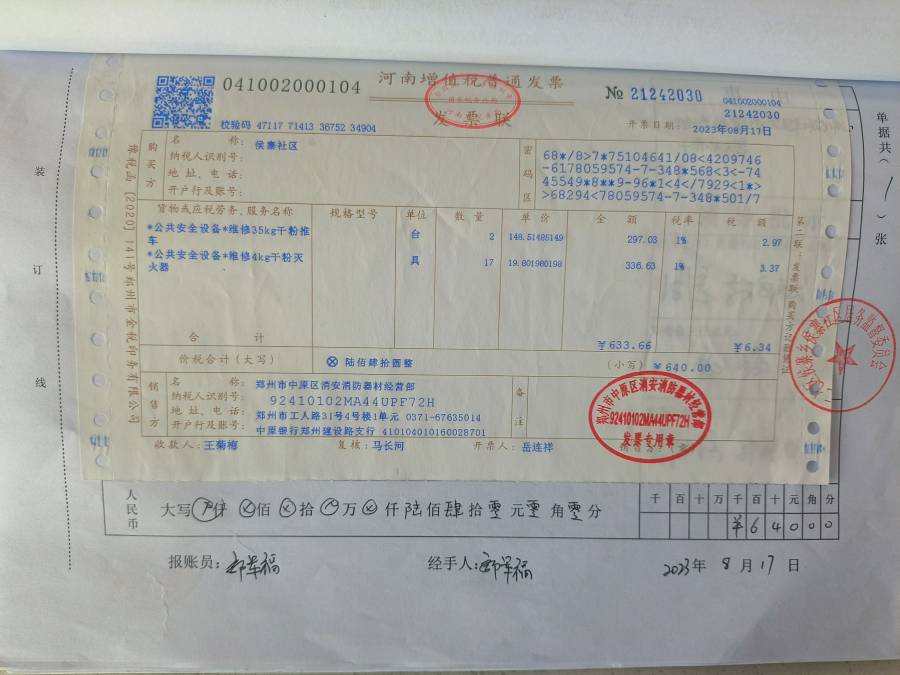 041002000104
河南增值税普通发票
发票联
№ 21242030
041002000104
21242030
校验码 47117 71413 36752 34904
开票日期: 2023年08月17日
购买方
名 称: 侯寨社区
纳税人识别号:
地 址、电 话:
开户行及账号:
密码区
68*/8>7*75104641/08<4209746
-6178059574-7-348*568<3<-74
45549*8**9-96*1<4</7929<1*>
>68294<78059574-7-348*501/7
货物或应税劳务、服务名称 规格型号 单位 数 量 单 价 金 额 税率 税 额
*公共安全设备*维修35kg干粉推车 台 2 148.51485149 297.03 1% 2.97
*公共安全设备*维修4kg干粉灭火器 具 17 19.801980198 336.63 1% 3.37
合 计 ¥633.66 ¥6.34
价税合计（大写） ⊗ 陆佰肆拾圆整 （小写）¥640.00
销售方
名 称: 郑州市中原区消安消防器材经营部
纳税人识别号: 92410102MA44UPF72H
地 址、电 话: 郑州市工人路31号4号楼1单元 0371-67635014
开户行及账号: 中原银行郑州建设路支行 410104010160028701
备注
郑州市中原区消安消防器材经营部
92410102MA44UPF72H
发票专用章
收款人: 王菊梅 复核: 马长河 开票人: 岳连祥
第二联：发票联 购买方
〔2020〕141号郑州市金税印务有限公司
装
订
线
单据共（ / ）张
侯寨社区居务监督委员会
人民币
大写 仟 佰 拾 万 仟陆佰肆拾零元零角零分
千 百 十 万 千 百 十 元 角 分
¥ 6 4 0 0 0
报账员: 军福 经手人: 军福 2023年 8 月 17 日